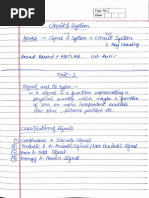 Page No.
Date
Circuit & System
Books → Signal & System + Circuit System
& Ray Choudhary
Unit - 1
Signal and its types →
→ A signal is a function representing a
physical quantity which maybe a function
of one or more independent variable
like time, distance
Classification of Signals
Continuous & Discrete Signal
Periodic & A-Periodic Signal / Non Periodic Signal
Even & Odd Signal
Energy & Power Signal